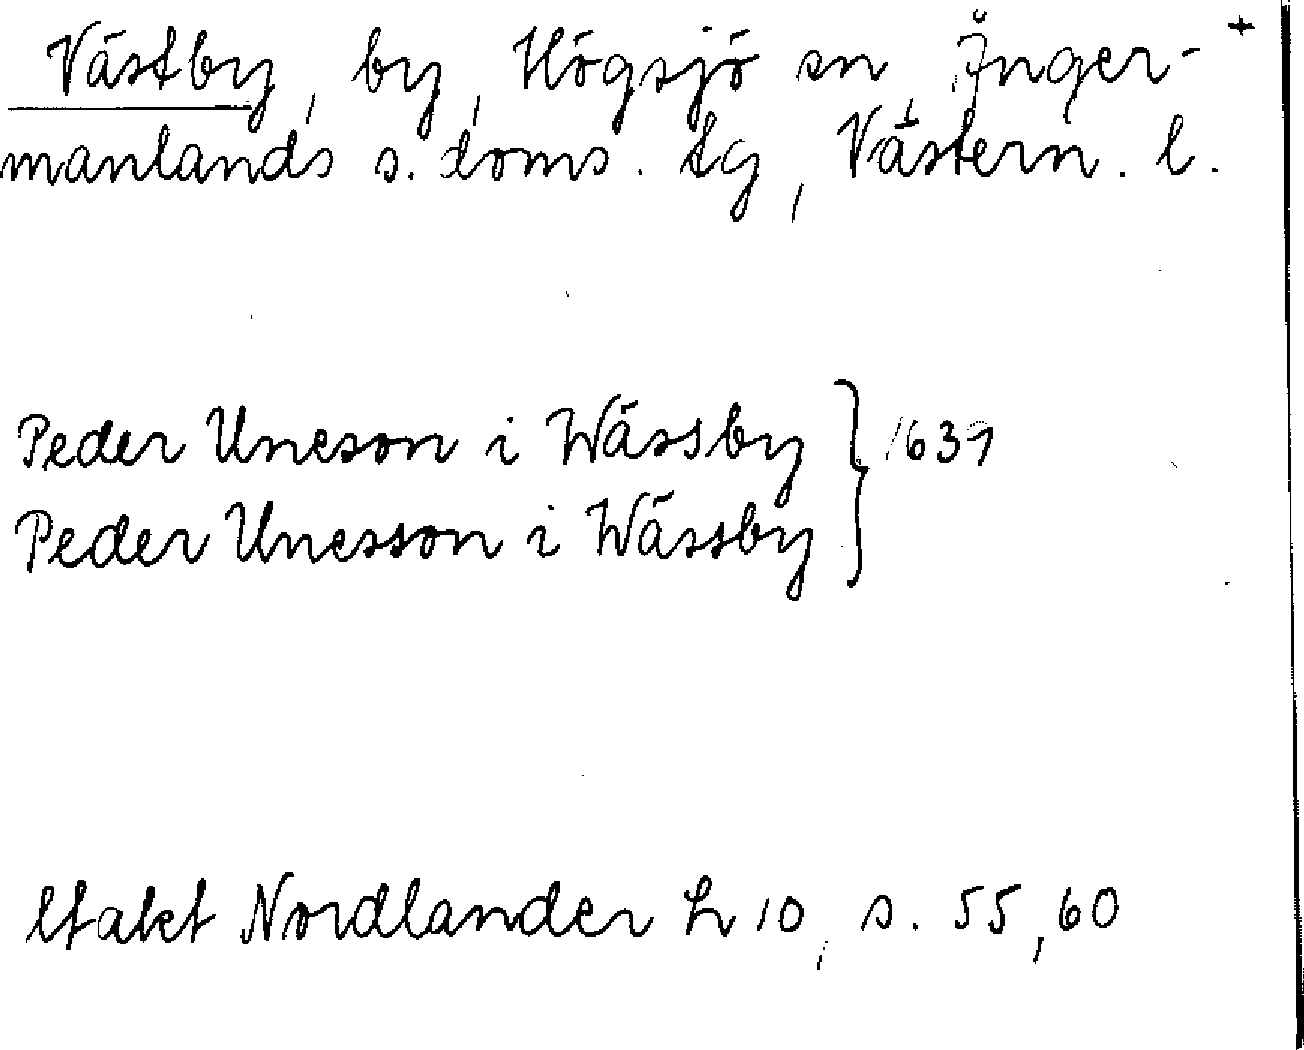 Västby, by, Högsjö sn, Ånger- +
manlands s. doms. tg, Västern. l.
Peder Uneson i Wässby } 1639
Peder Unesson i Wässby
Nordlander h 10, s. 55, 60